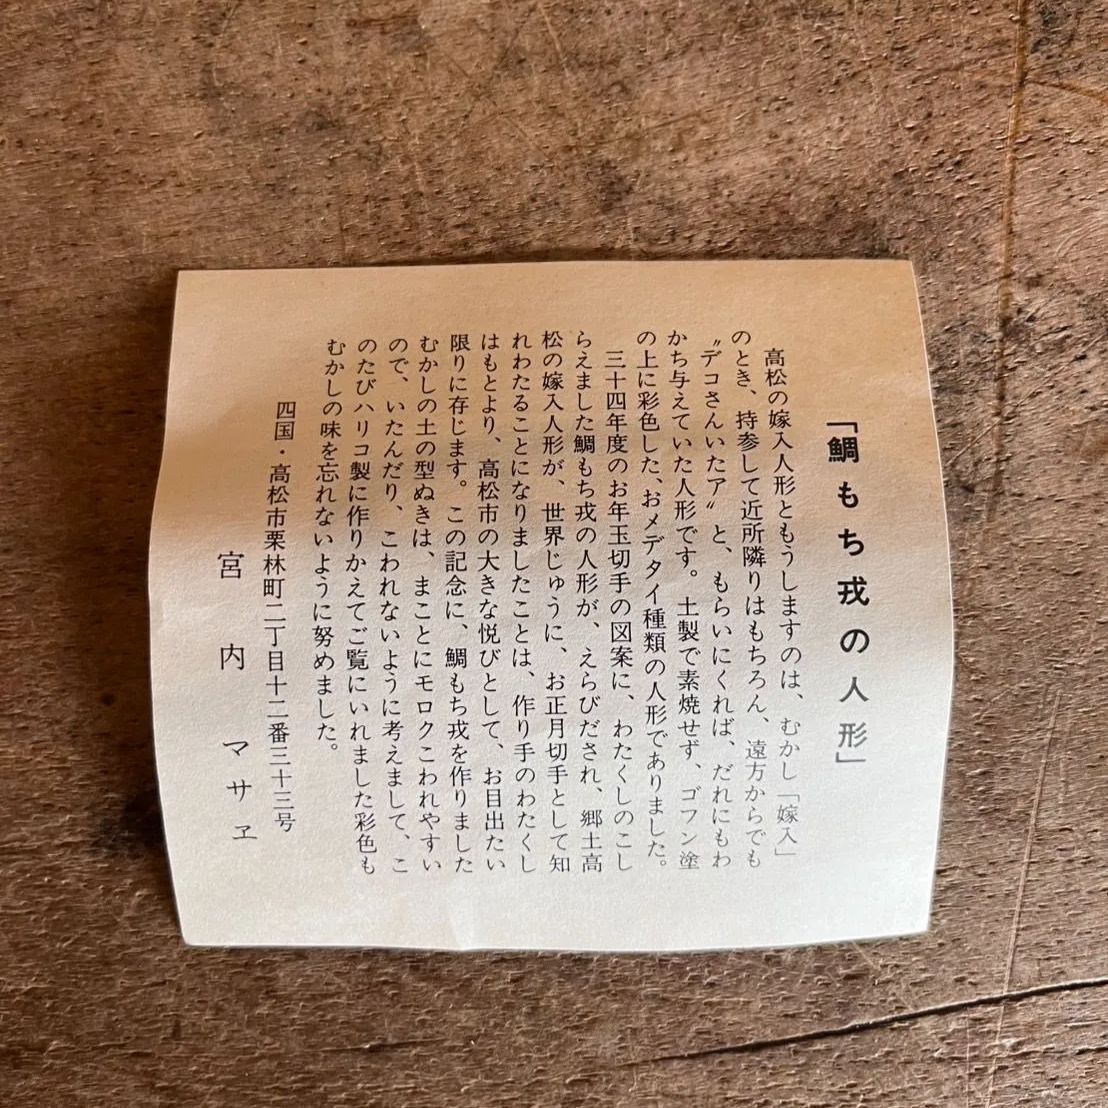 「鯛もち戎の人形」
高松の嫁入人形ともうしますのは、むかし「嫁入」
のとき、持参して近所隣りはもちろん、遠方からでも
〝デコさんいたア〟と、もらいにくれば、だれにもわ
かち与えていた人形です。土製で素焼せず、ゴフン塗
の上に彩色した、おメデタイ種類の人形でありました。
三十四年度のお年玉切手の図案に、わたくしのこし
らえました鯛もち戎の人形が、えらびだされ、郷土高
松の嫁入人形が、世界じゅうに、お正月切手として知
れわたることになりましたことは、作り手のわたくし
はもとより、高松市の大きな悦びとして、お目出たい
限りに存じます。この記念に、鯛もち戎を作りました
むかしの土の型ぬきは、まことにモロクこわれやすい
ので、いたんだり、こわれないように考えまして、こ
のたびハリコ製に作りかえてご覧にいれました彩色も
むかしの味を忘れないように努めました。
四国・高松市栗林町二丁目十二番三十三号
宮内マサヱ